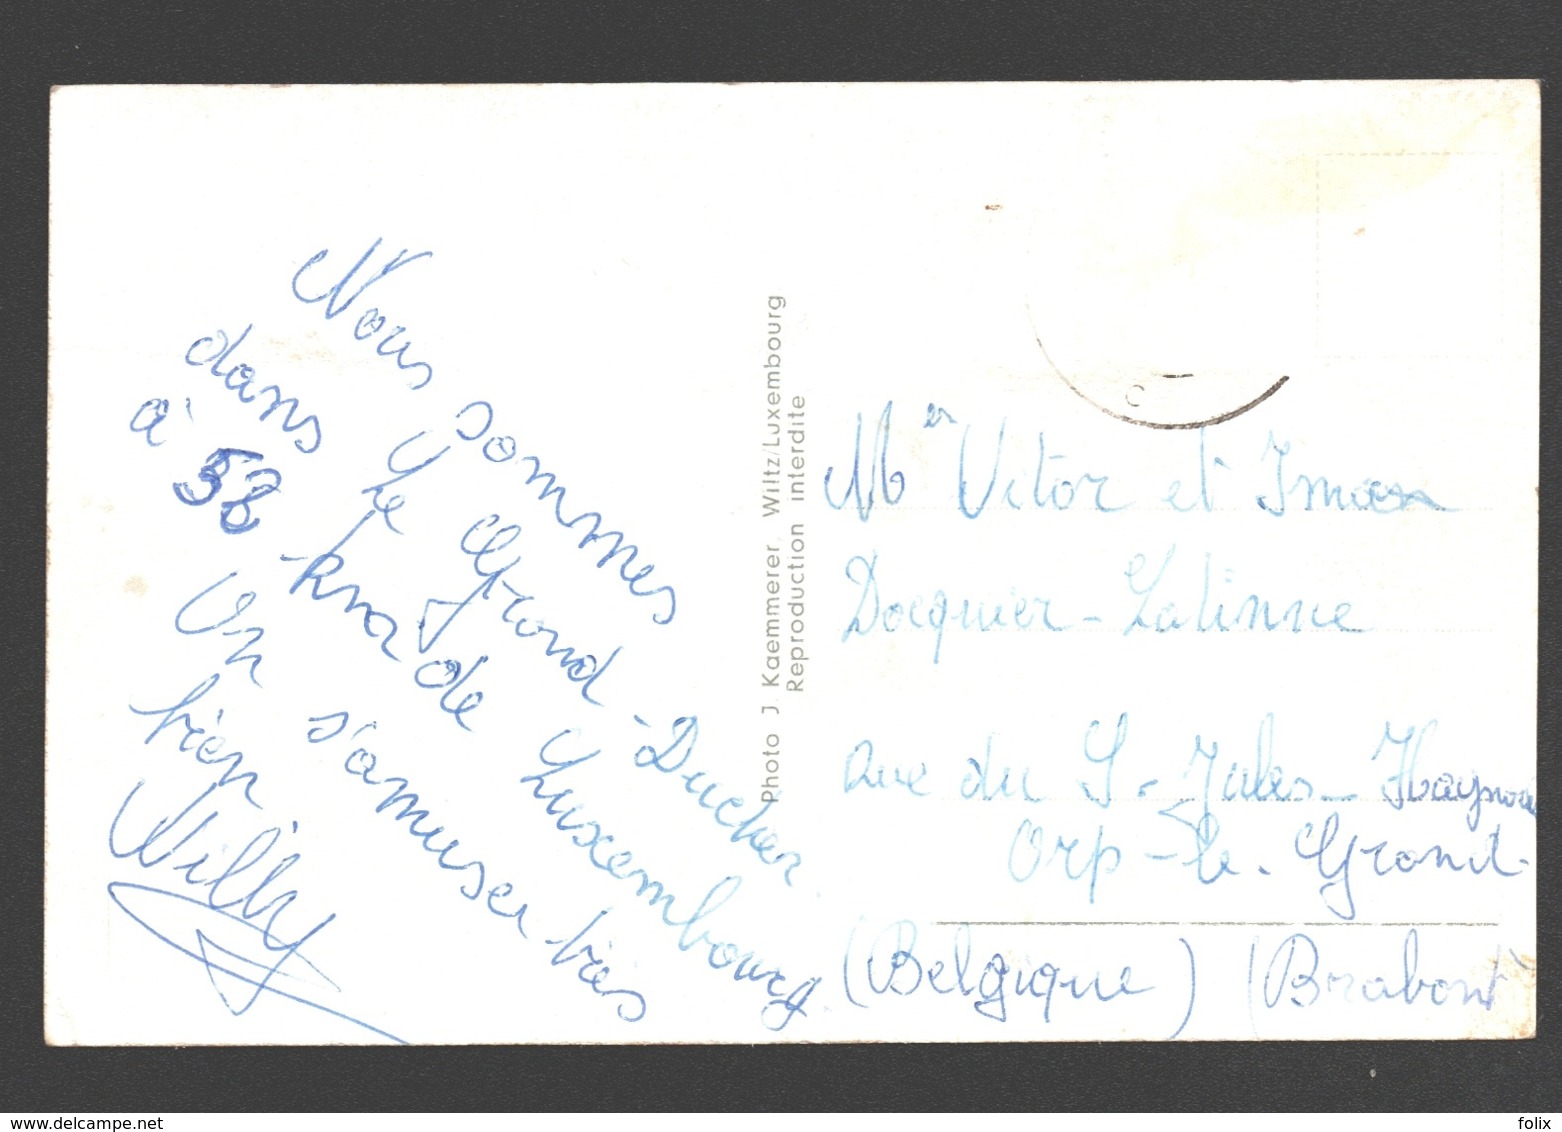 Nous sommes
dans Le Grond-Ducher
à 58 km de Luxembourg
On s'amuser tres
bien
Willy
Photo J. Kaemmerer, Wiltz/Luxembourg
Reproduction interdite
Mer Vitor et
Docquier-Latinne
rue du S. Jules-
Orp-le-Grond-
(Belgique) (Brabont)
felix